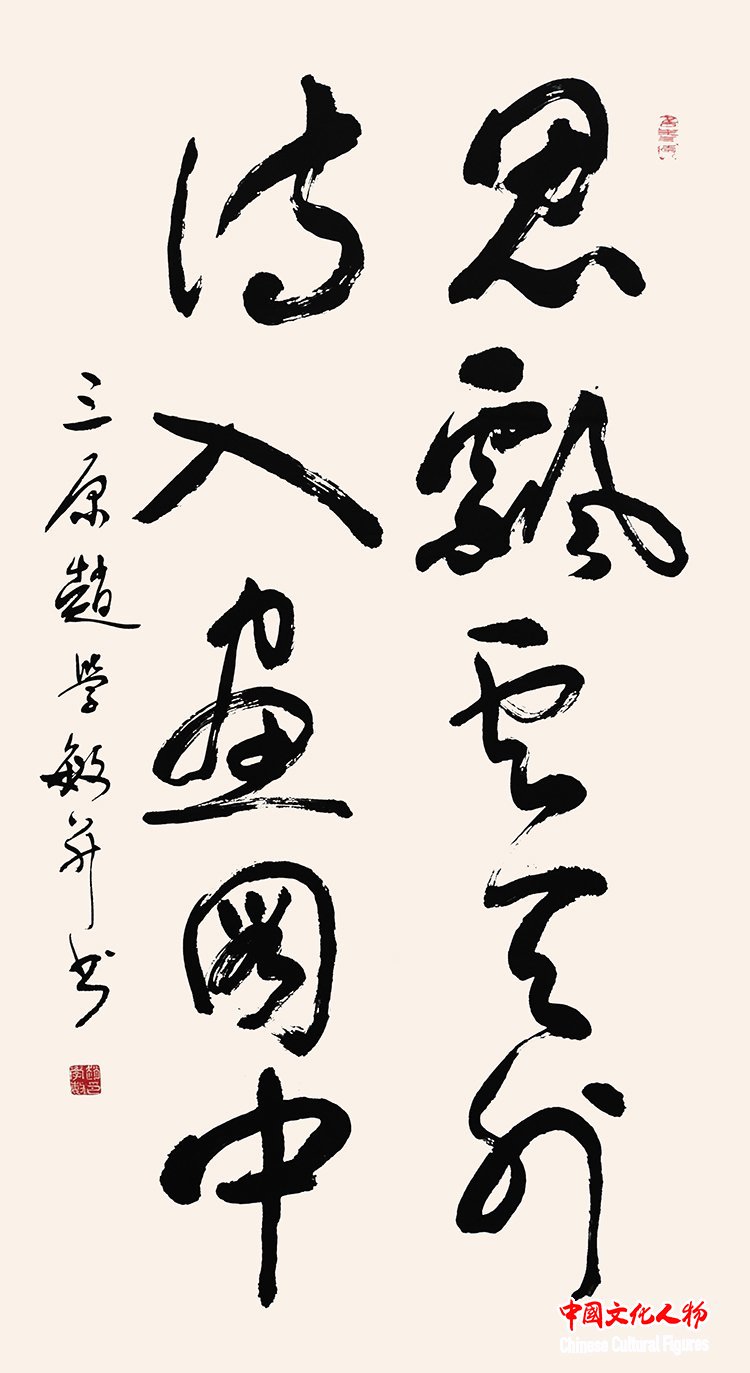 思飄云天外
詩入畫圖中
三原趙學敏并书
中國文化人物
Chinese Cultural Figures